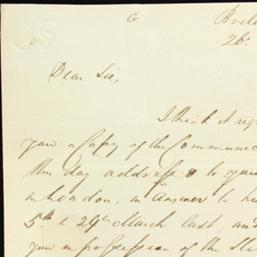 G
26
Dear Sir,
I think it
you a Copy of the Communic
this day address to your
in London, in Answer to
5th & 29th March last, and
you in possession of the